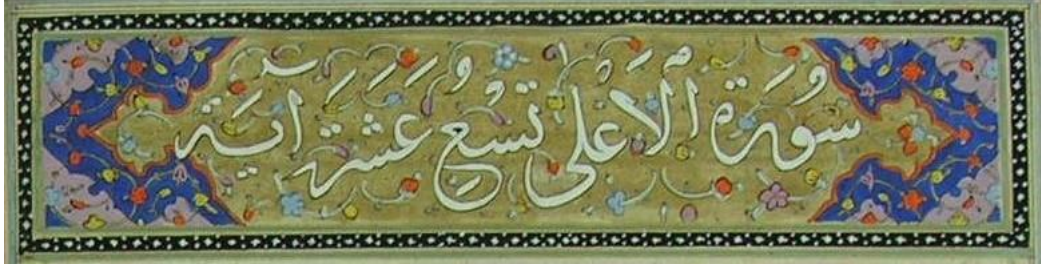 سُورَةُ الْاَعْلٰى تِسْعُ عَشَرَةَ اٰيَةً